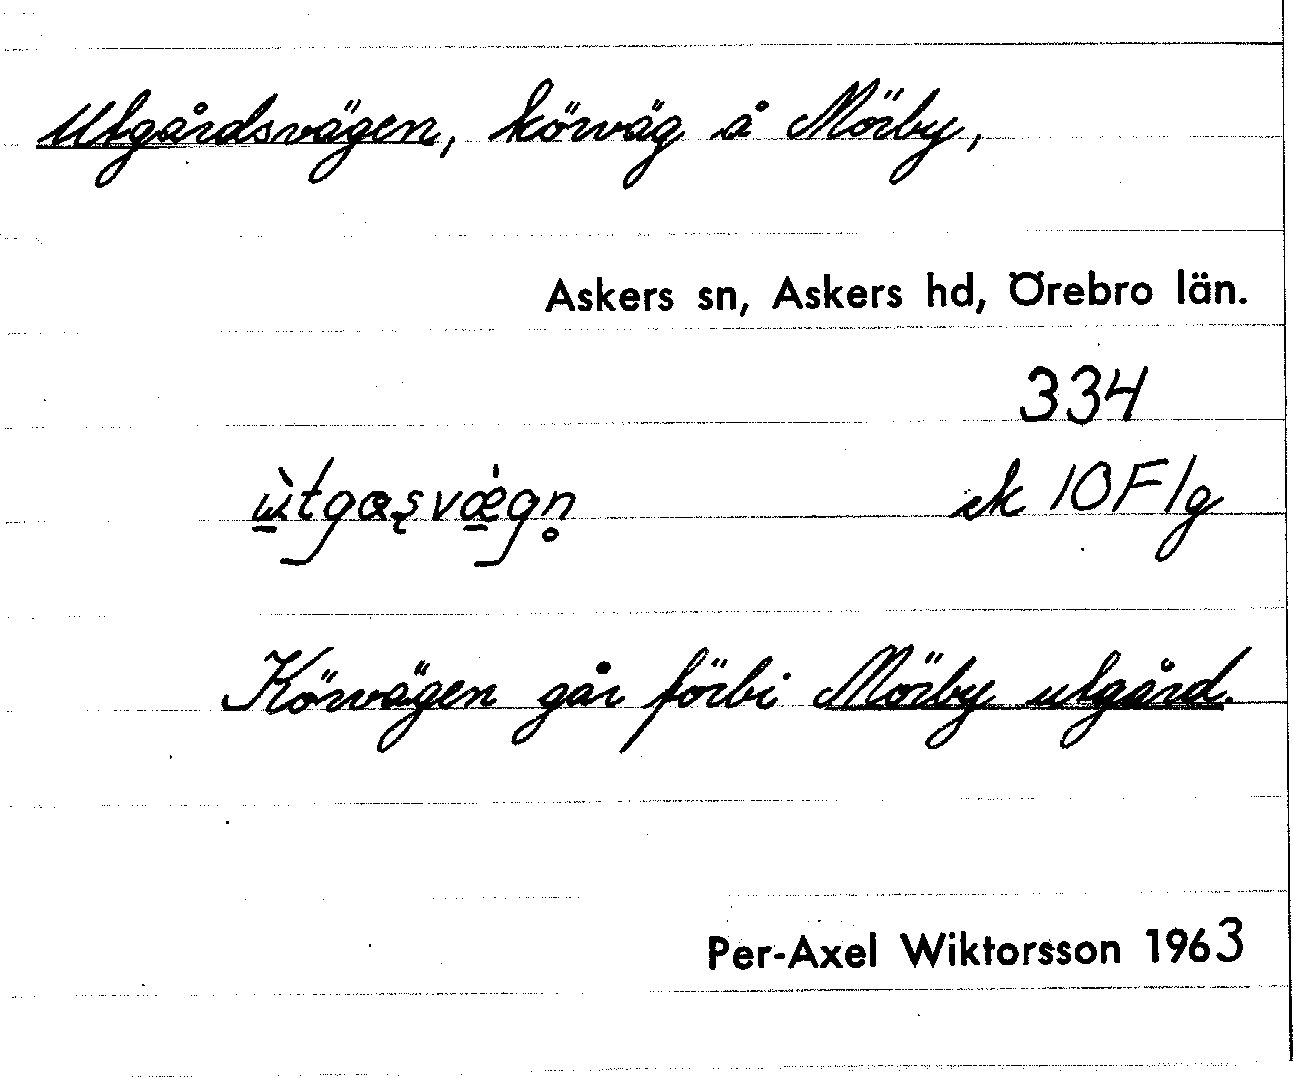 Utgårdsvägen, körväg å Mörby,
Askers sn, Askers hd, Örebro län.
334
ek 10F1g
Körvägen går förbi Mörby utgård.
Per-Axel Wiktorsson 1963